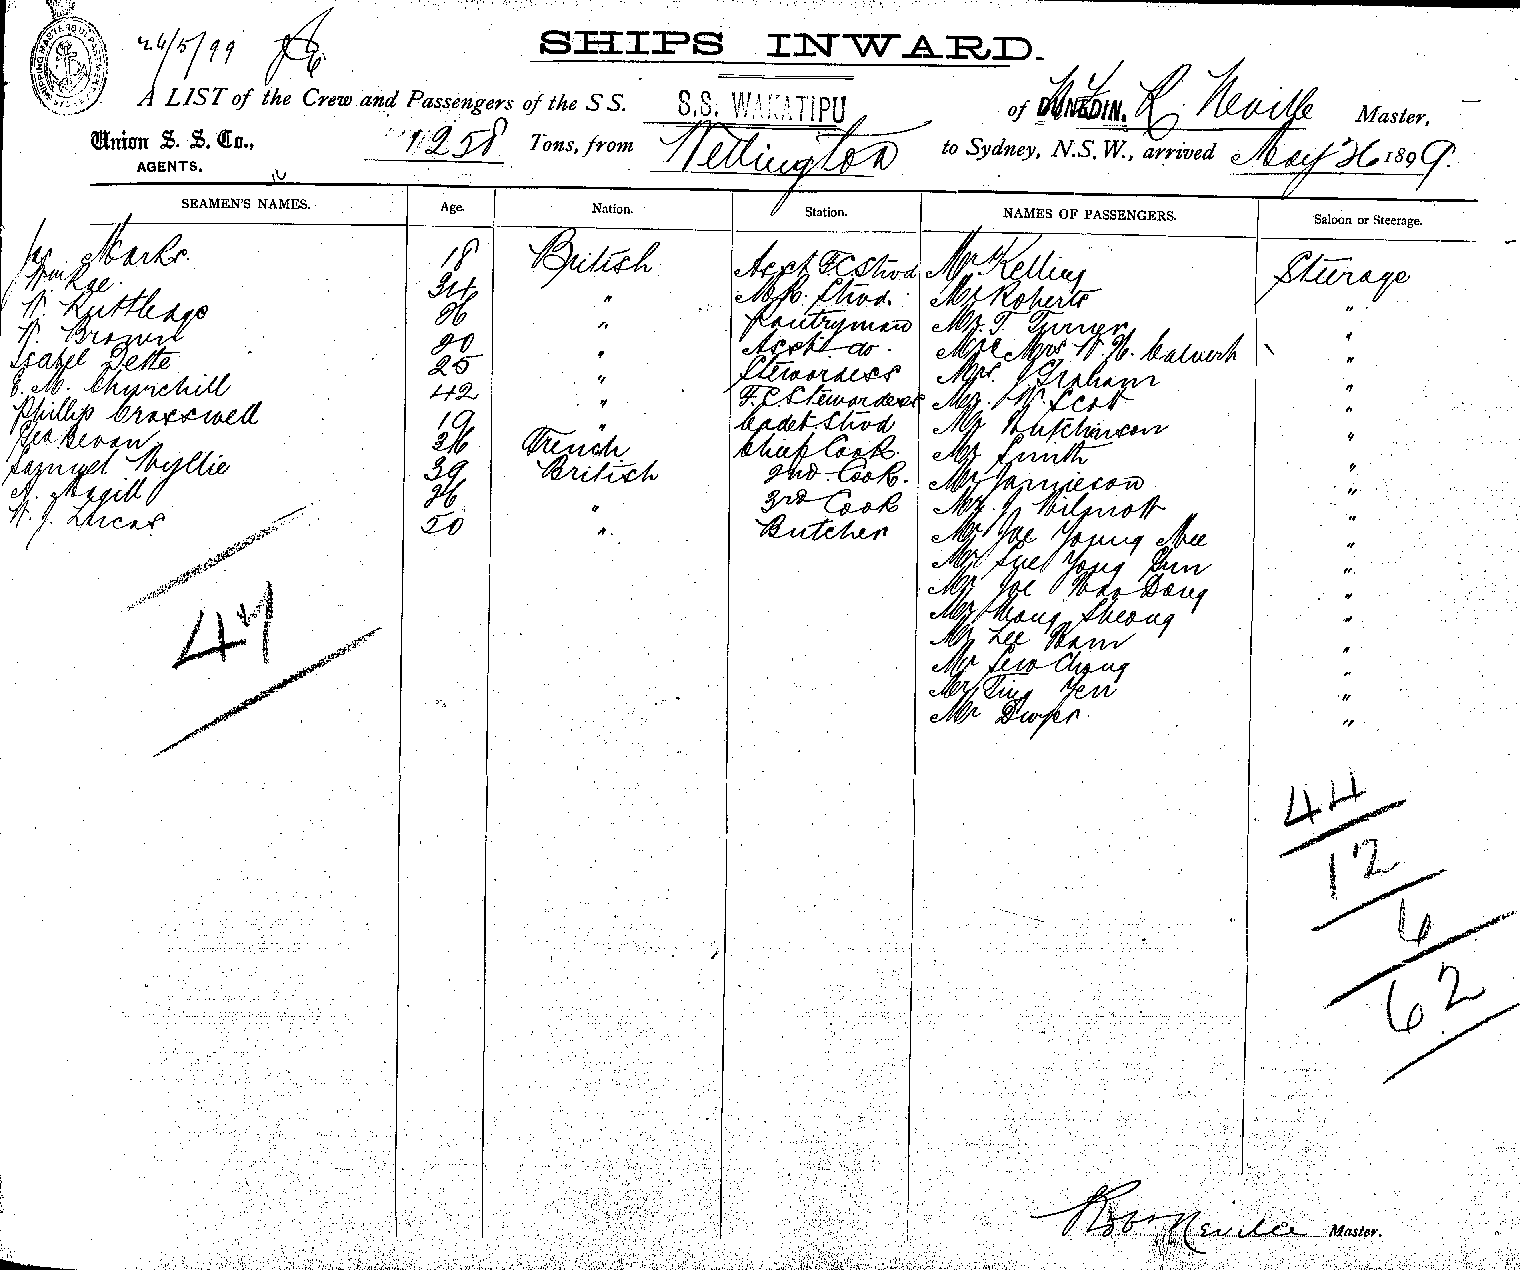 24/5/99
SHIPS INWARD.
A LIST of the Crew and Passengers of the SS. S.S. WAKATIPU of DUNEDIN. R. Neville Master,
Union S. S. Co., AGENTS. 1258 Tons, from Wellington to Sydney, N.S.W., arrived May 26 1899.
SEAMEN'S NAMES. Age. Nation. Station. NAMES OF PASSENGERS. Saloon or Steerage.
Jas Marks. 18 British Asst F.C. Stwd Mr Kelling Steerage
Wm Rae. 34 " M.R. Stwd. Mr Roberts "
W. Ruttledge 26 " Pantryman Mr. T. Turner "
W. Brown 20 " Asst do. Mr & Mrs W. H. Calvert "
Isabel Tette 25 " Stewardess Mrs. J Graham "
E. M. Churchill 42 " F.C. Stewardess Mr. W Scott "
Phillip Crosswell 19 " Cadet Stwd Mr Hutchinson "
Geo Bevan 36 French Chief Cook. Mr Smith "
Samuel Wyllie 39 British 2nd Cook. Mr Jamieson "
A. Magill 26 " 3rd Cook Mr. J. Wilmott "
W. J. Lucas 50 " Butcher Mr Joe Young Mee "
Mr Sue Yong "
Mr Joe Hao Dong "
Mr Wong Sheong "
Mr Lee Ham "
Mr Sew Chong "
Mr Ting Yen "
Mr Dwyer "
47
44
12
6
62
Robt Neville Master.